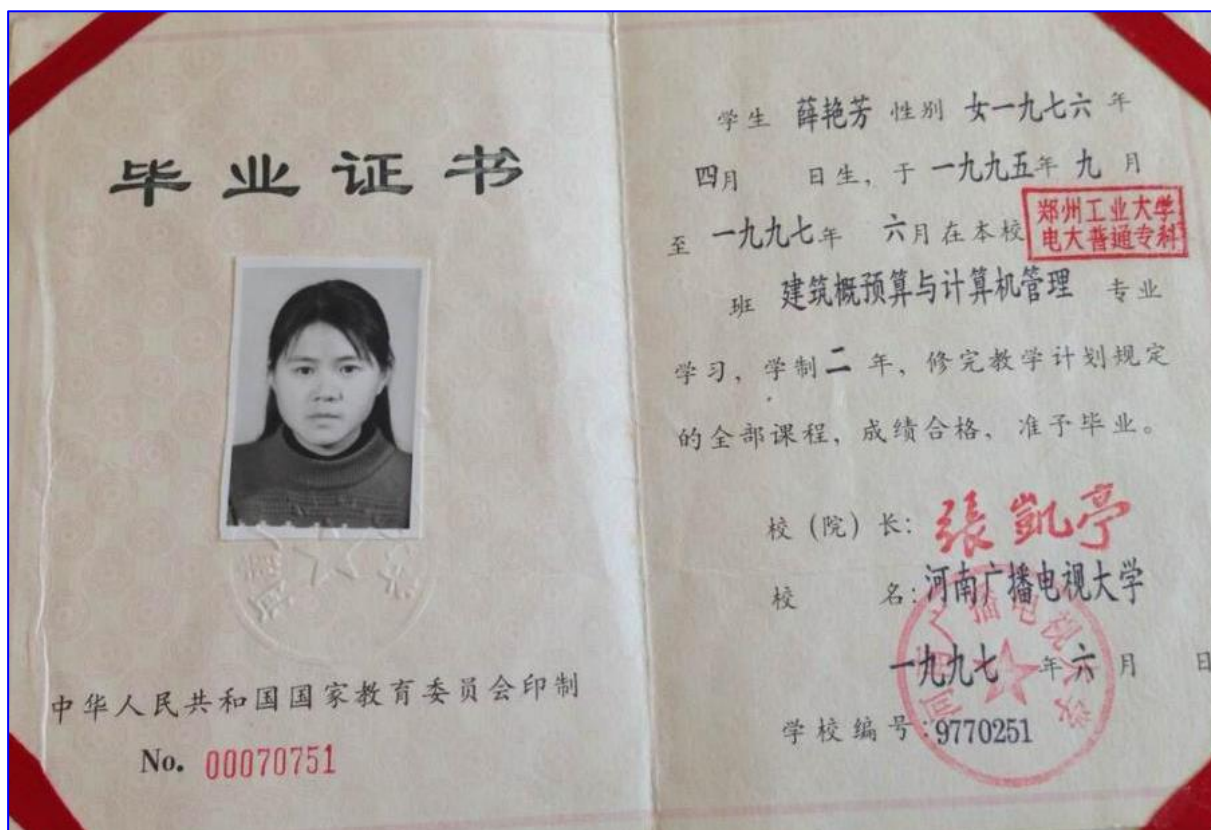 毕业证书
中华人民共和国国家教育委员会印制
No. 00070751
学生 薛艳芳 性别 女一九七六 年
四月 日生, 于 一九九五年 九 月
至 一九九七年 六月在本校 郑州工业大学
电大普通专科
班 建筑概预算与计算机管理 专业
学习, 学制 二 年, 修完教学计划规定
的全部课程, 成绩合格、准予毕业。
校 (院) 长: 張凱亭
校 名: 河南广播电视大学
一九九七 年 六 月 日
学校编号: 9770251